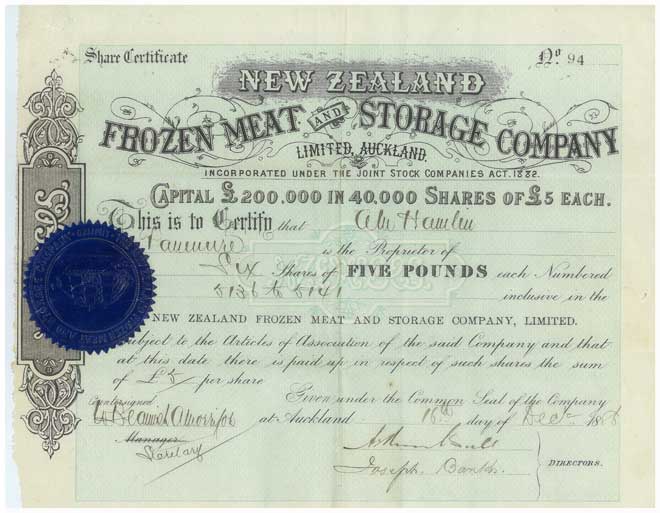 Share Certificate
No 94
NEW ZEALAND
FROZEN MEAT AND STORAGE COMPANY
LIMITED, AUCKLAND.
INCORPORATED UNDER THE JOINT STOCK COMPANIES ACT. 1882.
CAPITAL £200.000 IN 40,000 SHARES OF £5 EACH.
This is to Certify that Hamlin
is the Proprietor of
Six Shares of FIVE POUNDS each Numbered
5136 to 5141 inclusive in the
NEW ZEALAND FROZEN MEAT AND STORAGE COMPANY, LIMITED.
Subject to the Articles of Association of the said Company and that
at this date there is paid up in respect of such shares the sum
of £5 per share
Given under the Common Seal of the Company
Countersigned
at Auckland 16th day of Decr
Manager
Secretary
Joseph Banks.
DIRECTORS.